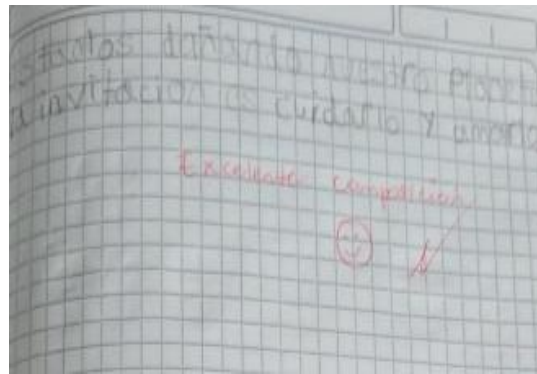 estamos dañando nuestro planet
la invitación es cuidarlo y amarlo
Excelente composición